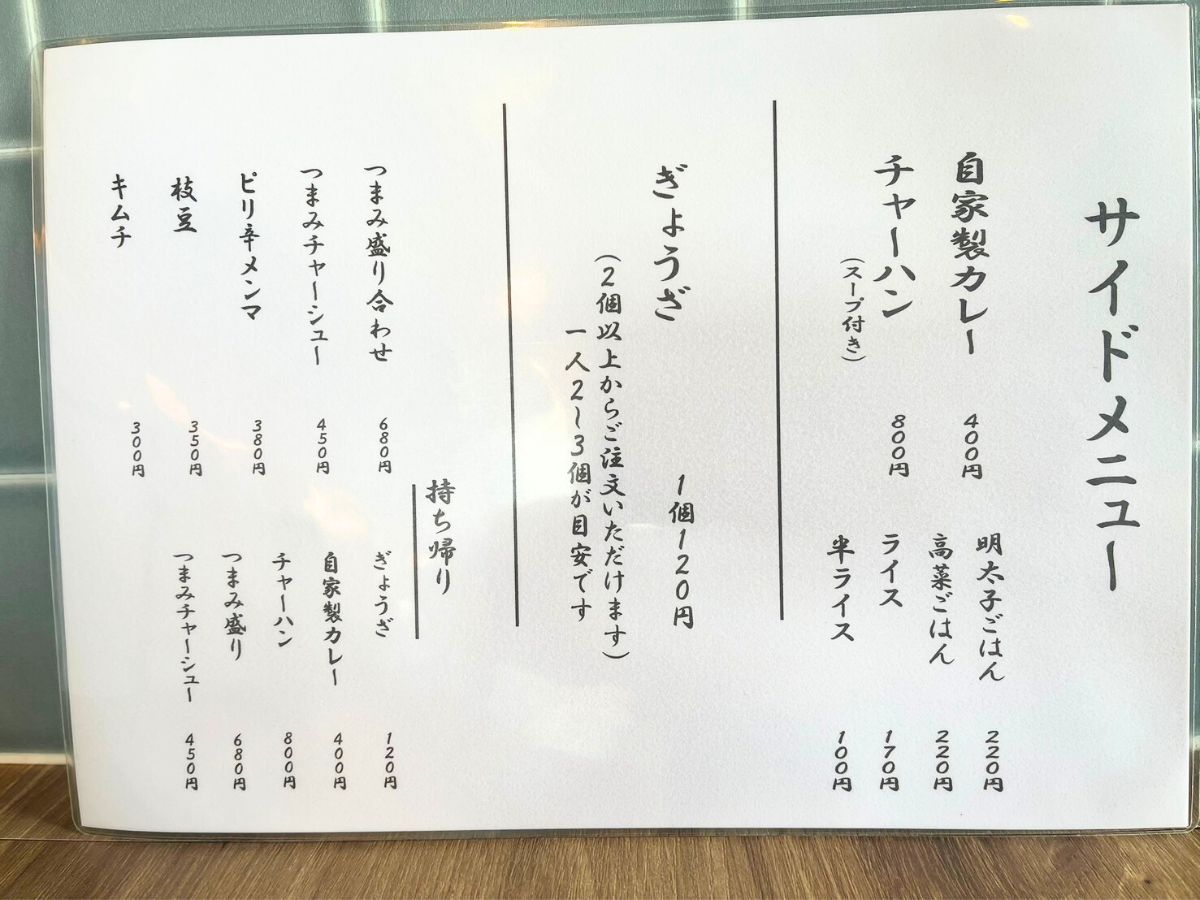 サイドメニュー
自家製カレー 400円
チャーハン 800円
(スープ付き)
明太子ごはん 220円
高菜ごはん 220円
ライス 170円
半ライス 100円
ぎょうざ 1個120円
(2個以上からご注文いただけます)
一人2〜3個が目安です
つまみ盛り合わせ 680円
つまみチャーシュー 450円
ピリ辛メンマ 380円
枝豆 350円
キムチ 300円
持ち帰り
ぎょうざ 120円
自家製カレー 400円
チャーハン 800円
つまみ盛り 680円
つまみチャーシュー 450円